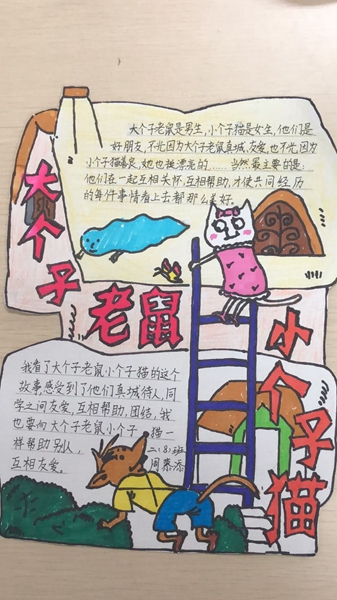 大个子老鼠是男生,小个子猫是女生,他们是
好朋友,不光因为大个子老鼠真城、友爱,也不光因为
小个子猫善良,她也被漂亮的……当然最主要的是:
他们在一起互相关怀,互相帮助,才使共同经历
的每件事情看上去都那么美好。
大个子
老鼠
小个子猫
我看了大个子老鼠小个子猫的这个
故事感受到了他们真城待人,同
学之间友爱,互相帮助,团结,我
也要向大个子老鼠小个子猫一
样帮助别人,
互相友爱。
二.8.班
周秦添